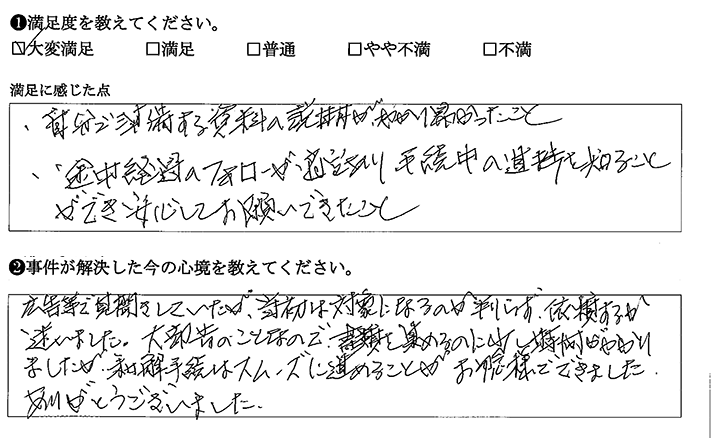 ❶満足度を教えてください。
☑大変満足 □満足 □普通 □やや不満 □不満
満足に感じた点
、自分で準備する資料の説明が、わかり易かったこと
、途中経過のフォローが適宜あり 手続中の進捗を知ること
ができ安心してお願いできたこと
❷事件が解決した今の心境を教えてください。
広告等で見聞きしていたが、当初は対象になるのか判らず、依頼するか
迷いました。大部昔のことなので 書類を集めるのに少し時間がかかり
ましたが、和解手続はスムーズに進めることが お陰様でできました。
ありがとうございました。